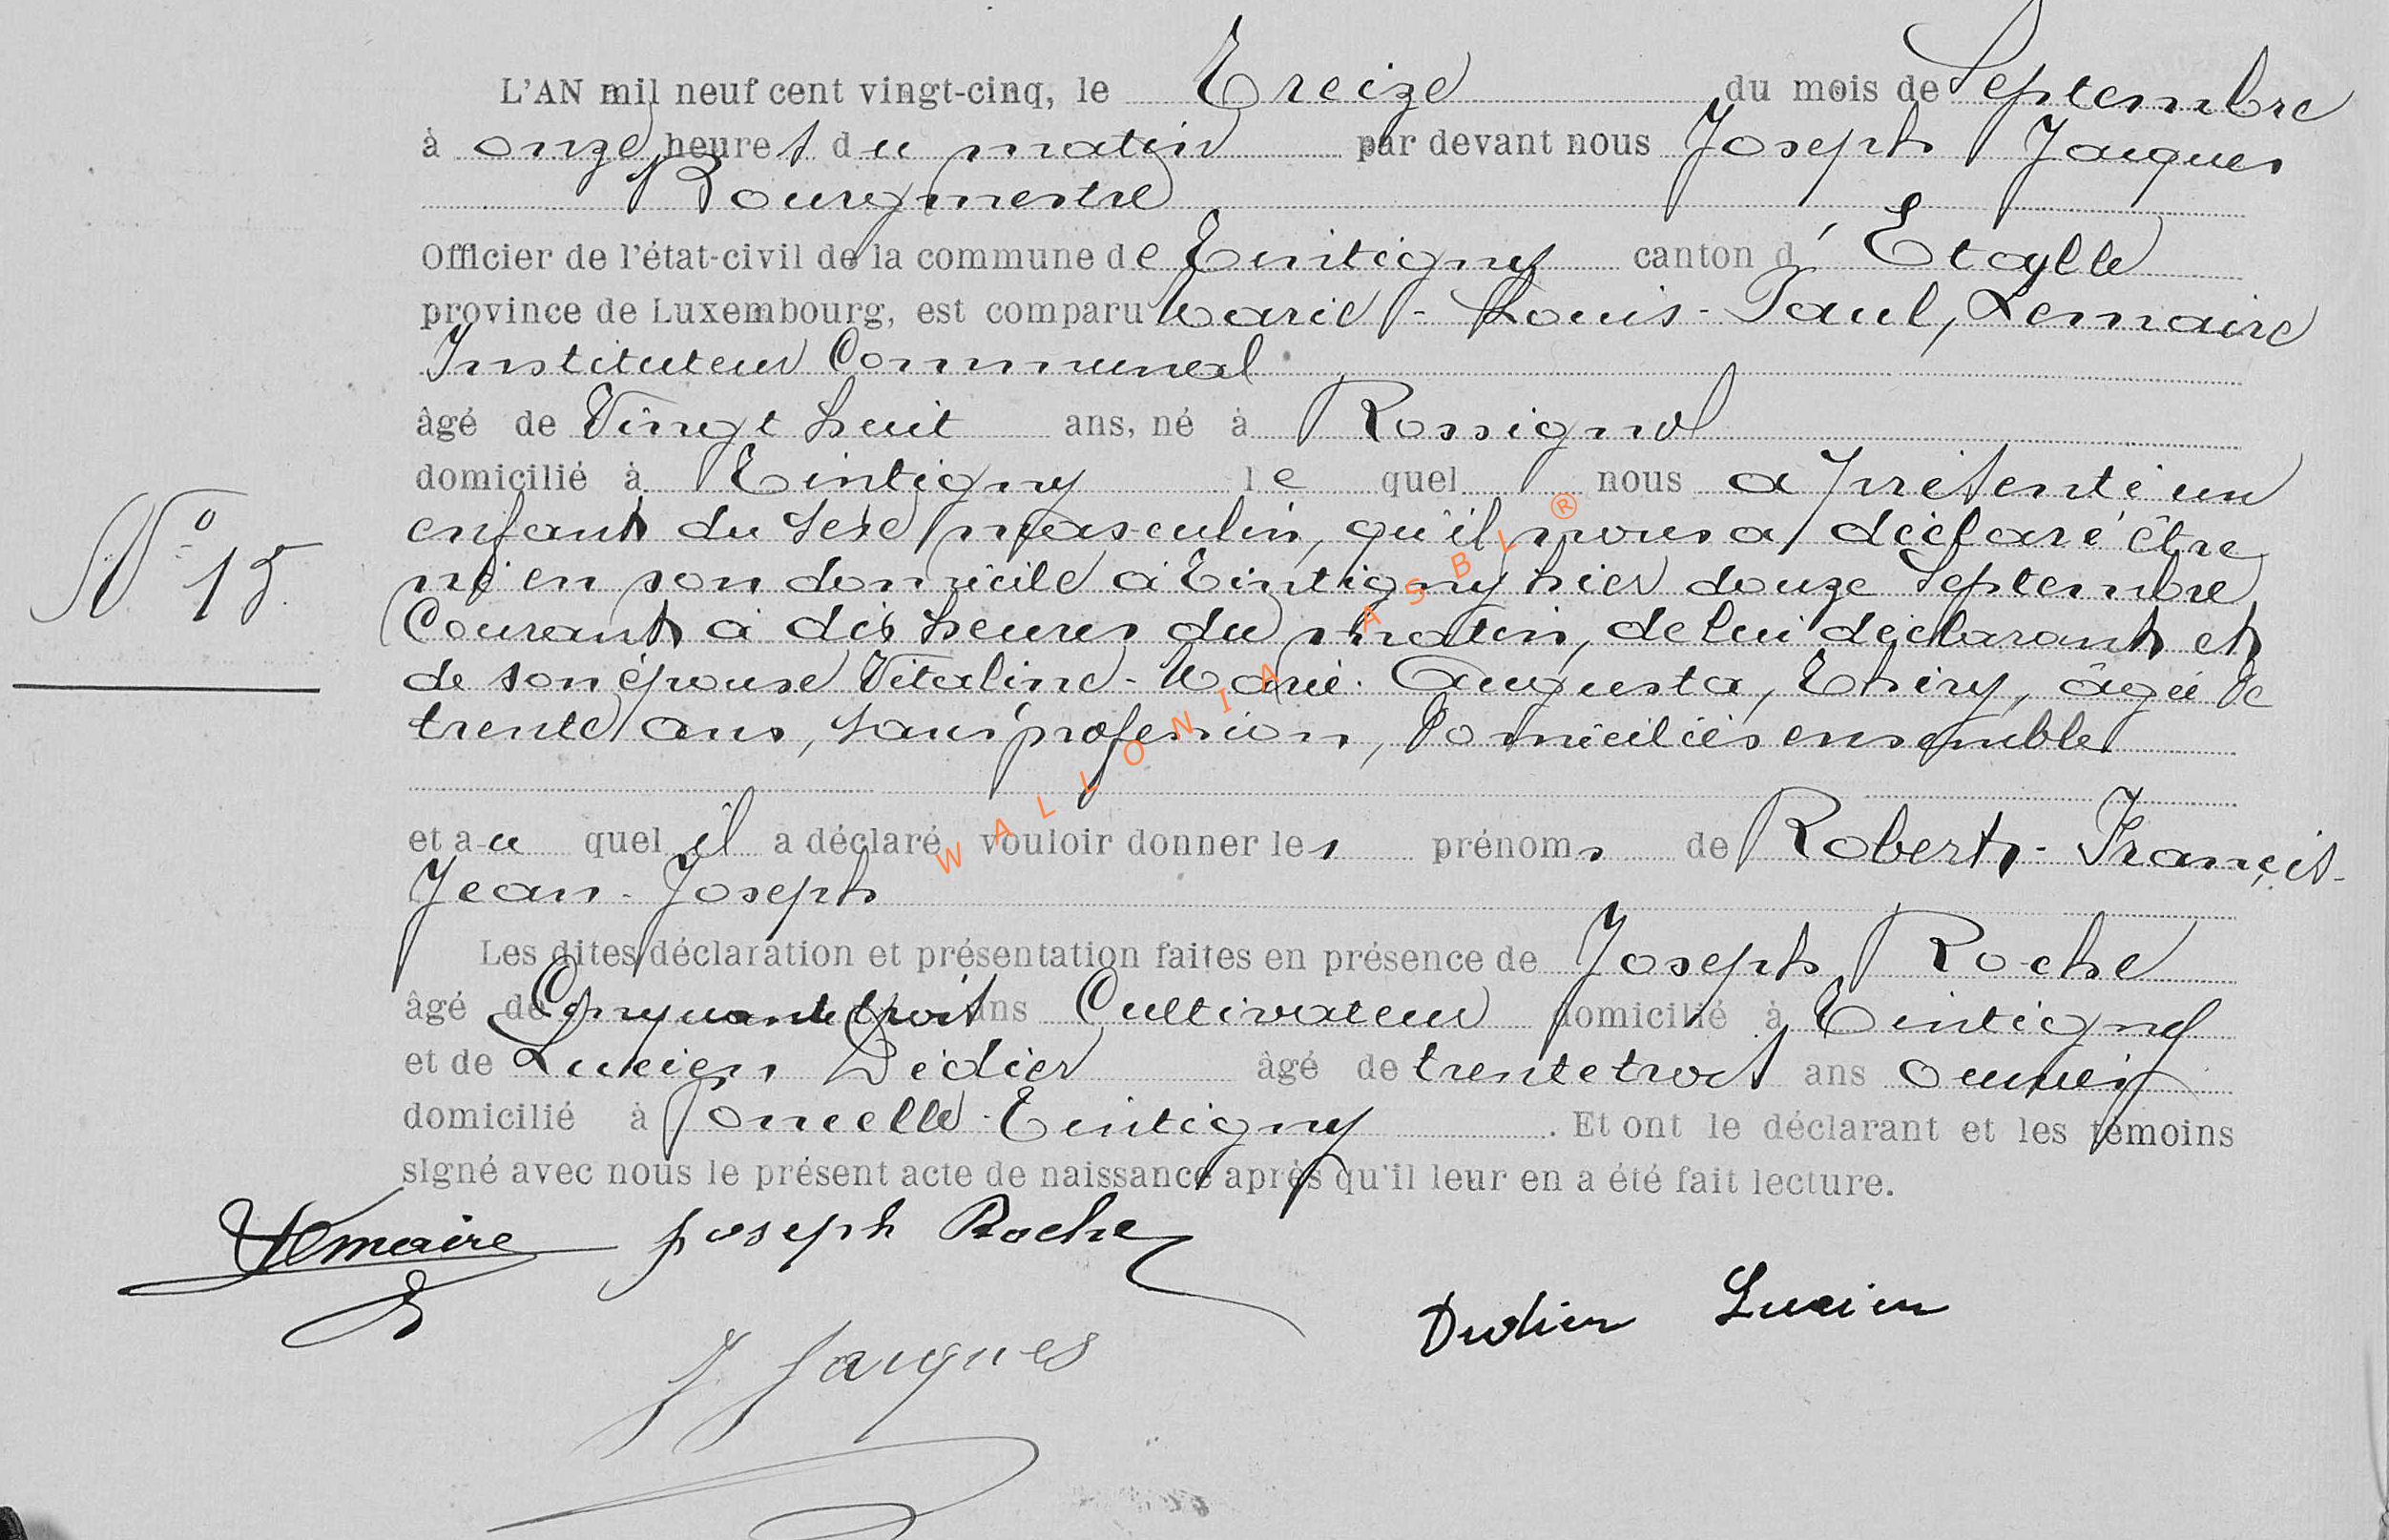 L'AN mil neuf cent vingt-cinq, le Treize du mois de Septembre
à onze heures du matin par devant nous Joseph Jacques
Bourgmestre
Officier de l'état-civil de la commune de Tintigny canton d' Etaylle
province de Luxembourg, est comparu Marie-Louis-Paul, Lemaire
Instituteur Communal
âgé de Vingt huit ans, né à Rossignol
domicilié à Tintigny le quel nous a présenté un
enfant du sexe masculin, qu'il nous a déclaré être
né en son domicile à Tintigny hier douze Septembre
Courant à dix heures du matin, de lui déclarant et
de son épouse Vitaline-Marie-Augusta, Thiry, âgée de
trente ans, sans profession, Domiciliés ensemble
N° 15
et au quel il a déclaré vouloir donner les prénoms de Robert-Françis-
Jean-Joseph
Les dites déclaration et présentation faites en présence de Joseph Roche
âgé de Cinquante trois ans Cultivateur domicilié à Tintigny
et de Lucien Didier âgé de trente trois ans ouvrier
domicilié à Poncelle-Tintigny . Et ont le déclarant et les témoins
signé avec nous le présent acte de naissance après qu'il leur en a été fait lecture.
Lemaire Joseph Roche
Didier Lucien
J Jacques
WALLONIA ASBL ®